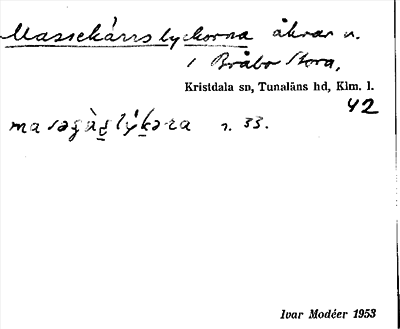 Massekärrslyckorna åkrar n.
i Bråbo Stora,
Kristdala sn, Tunaläns hd, Klm. l.
42
r. 33.
Ivar Modéer 1953